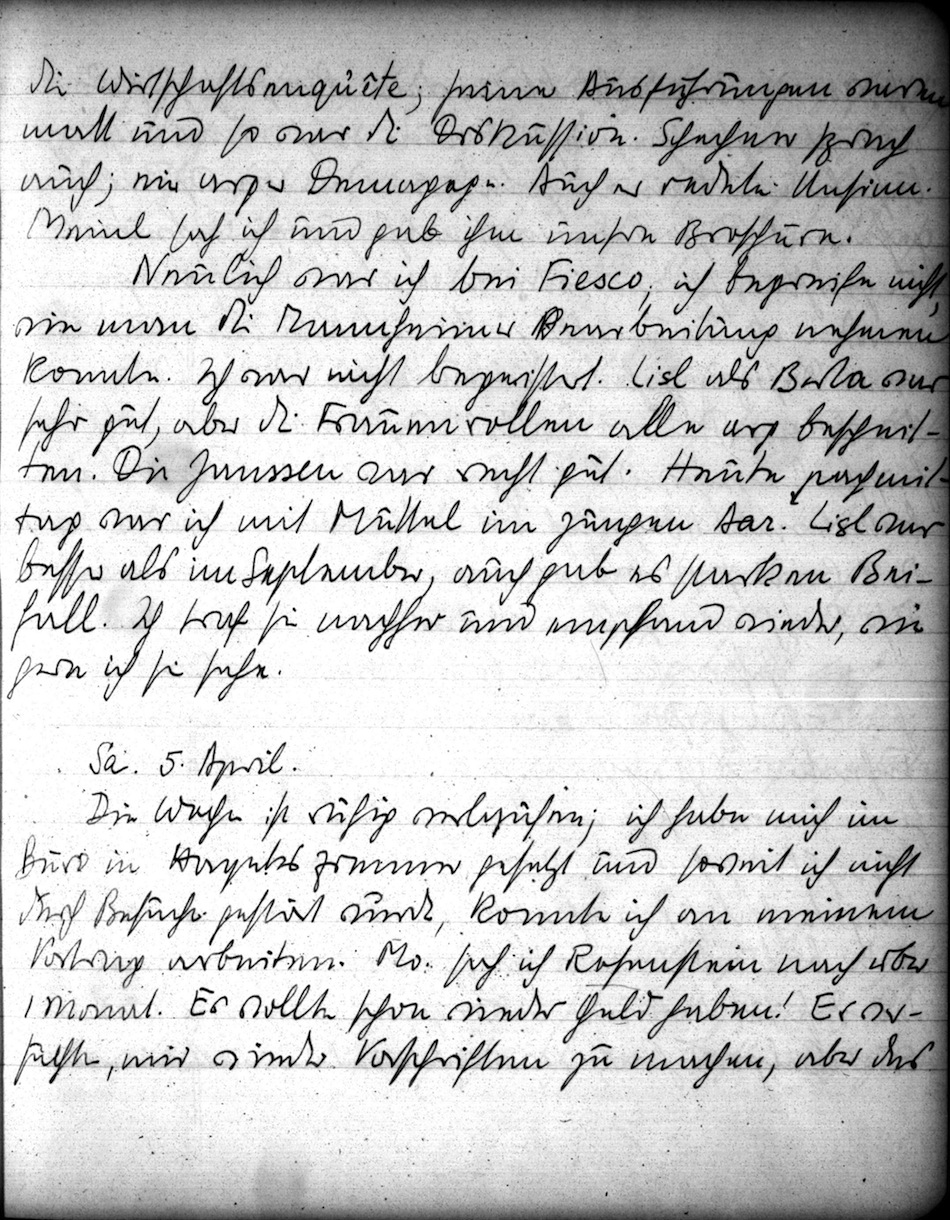 die Wirtschaftsenquête; seine Ausführungen waren
matt und so war die Diskussion. Schachner sprach
auch; ein arger Demagoge. Auch er redete Unsinn.
Meinl sah ich und gab ihm unsre Broschüre.
Neulich war ich bei Fiesco, ich begreife nicht,
wie man die Mannheimer Bearbeitung nehmen
konnte. Ich war nicht begeistert. Lisl als Berta war
sehr gut, aber die Frauenrollen alle arg beschnit-
ten. Die Janssen war recht gut. Heute nachmit-
tag war ich mit Muttel im jungen Aar. Lisl war
besser als im September, auch gab es starken Bei-
fall. Ich traf sie nachher und empfand wieder, wie
gern ich sie sehe.
Sa. 5. April.
Die Woche ist ruhig verlaufen; ich habe mich im
Büro in Hayeks Zimmer gesetzt und soweit ich nicht
durch Besuche gestört wurde, konnte ich an meinem
Vortrag arbeiten. Mo. sah ich Rosenstein nach über
1 Monat. Er wollte schon wieder Geld haben! Er ver-
suchte, mir wieder Vorschriften zu machen, aber das